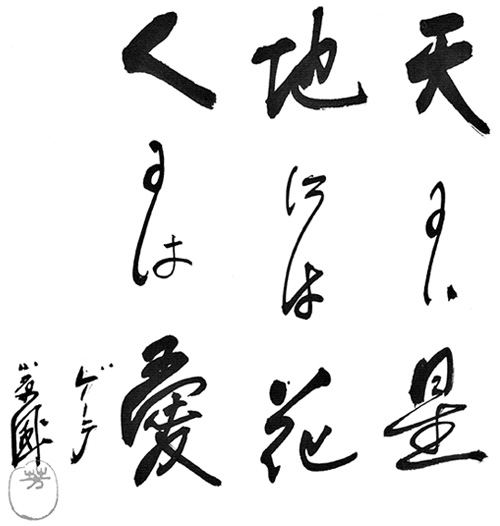 天には星
地には花
人には愛
ゲーテ
芳